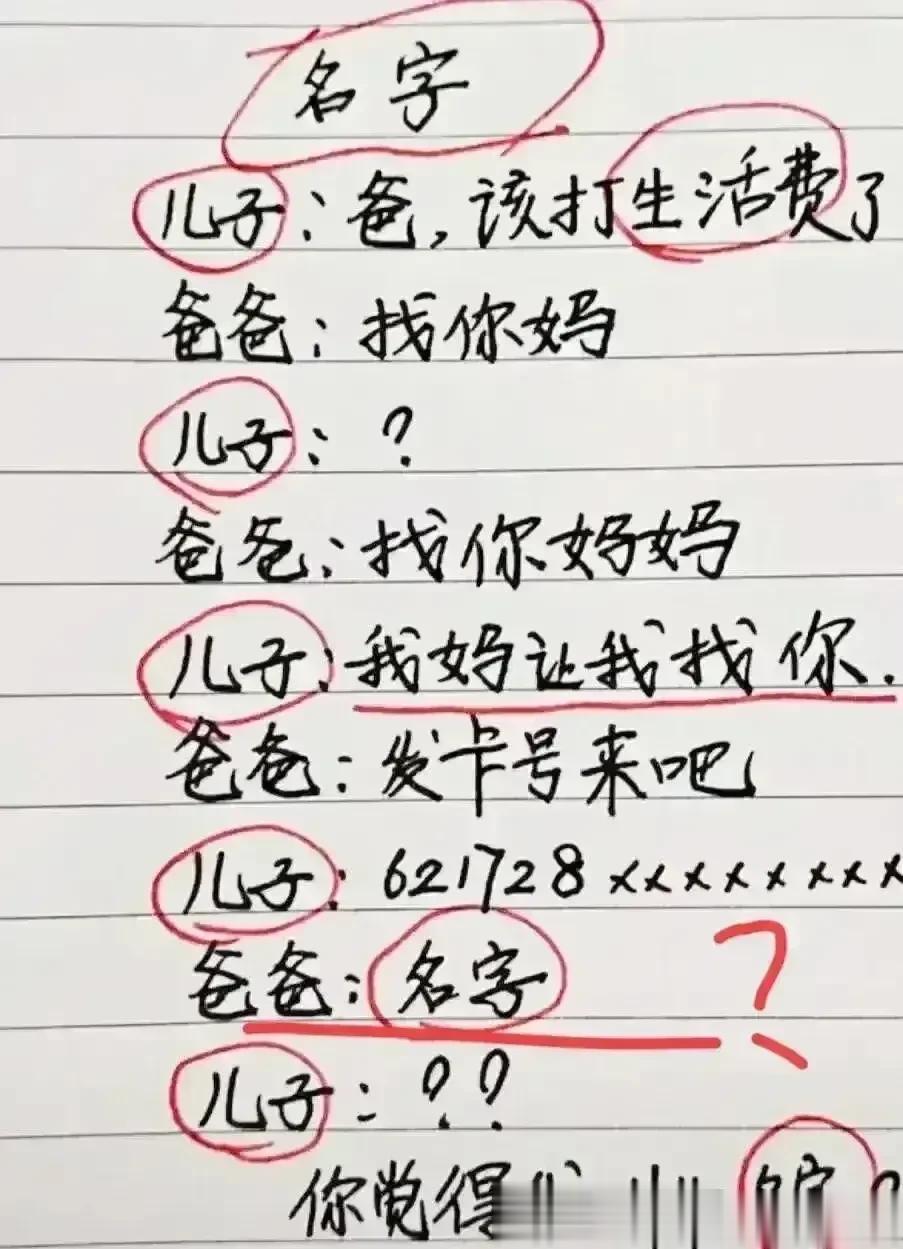 名字
儿子：爸，该打生活费了
爸爸：找你妈
儿子：？
爸爸：找你妈妈
儿子：我妈让我找你.
爸爸：发卡号来吧
儿子：621728xxxxxxxxx
爸爸：名字
？
儿子：？？
你觉得